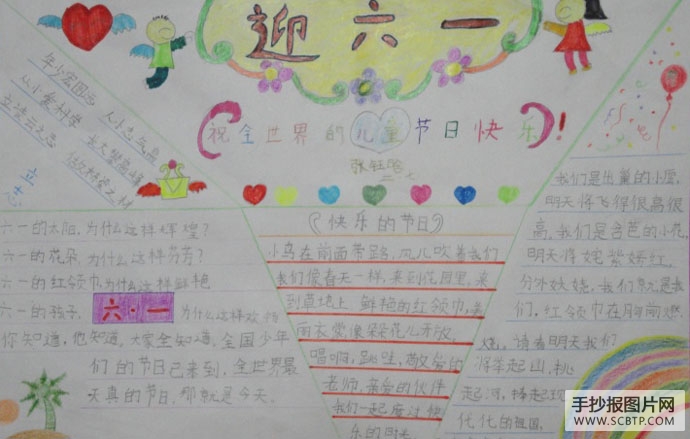 迎六一
祝全世界的儿童节日快乐!
年少宏图远
从小爱科学
立凌云之志
立志
快乐的节日
六一的太阳,为什么这样辉煌?
六一的花朵,为什么这样芬芳?
六一的红领巾为什么这样鲜艳
六一的孩子,六·一为什么这样欢畅
你知道,他知道,大家全知道,全国少年
们的节日已来到,全世界最
天真的节日,那就是今天.
小鸟在前面带路,风儿吹着我们
我们像春天一样,来到花园里,来
到草地上,鲜艳的红领巾,美
丽衣裳像朵朵花儿开放.
唱啊,跳哇,敬爱的
老师,亲爱的伙伴
我们一起度过快
乐的
我们是出巢的小鹰,
明天将飞得很高很
高,我们是含苞的小花,
明天将姹紫嫣红,
分外妖娆,我们就是我
们,红领巾在胸前燃
烧,请看明天我们
将举起山,挑
起河,捧起现
代化的祖国.
手抄报图片网
WWW.SCBTP.COM